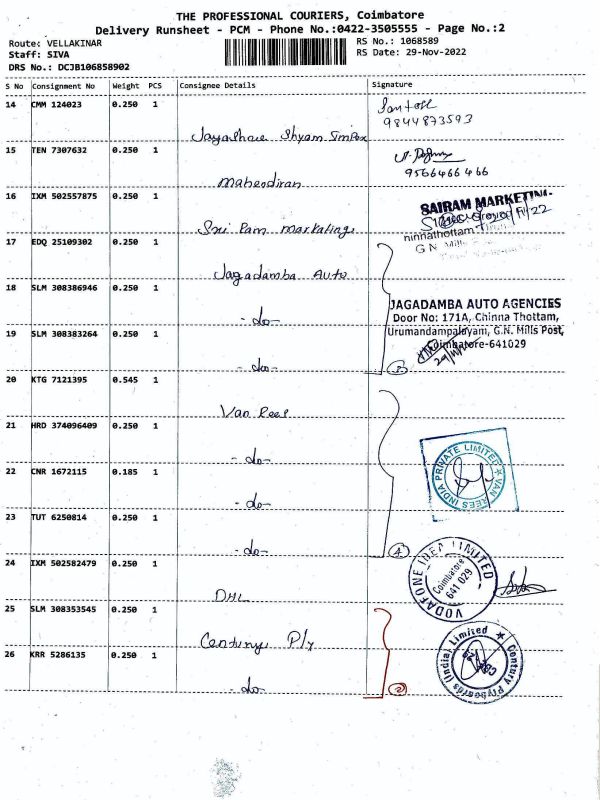 THE PROFESSIONAL COURIERS, Coimbatore
Delivery Runsheet - PCM - Phone No.:0422-3505555 - Page No.:2
Route: VELLAKINAR
RS No.: 1068589
Staff: SIVA
RS Date: 29-Nov-2022
DRS No.: DCJB106858902
S No Consignment No Weight PCS Consignee Details Signature
14 CMM 124023 0.250 1
9844873593
Jayashree Shyam Impex
15 TEN 7307632 0.250 1
9566466466
Mahendiran
16 IXM 502557875 0.250 1
SAIRAM MARKETING
Sri Ram Marketing
ninnathottam
G.N. Mills
17 EDQ 25109302 0.250 1
Jagadamba Auto
18 SLM 308386946 0.250 1
-do-
JAGADAMBA AUTO AGENCIES
Door No: 171A, Chinna Thottam,
Urumandampalayam, G.N. Mills Post,
Coimbatore-641029
19 SLM 308383264 0.250 1
-do-
3
20 KTG 7121395 0.545 1
Van Rees
21 HRD 374096409 0.250 1
-do-
22 CNR 1672115 0.185 1
-do-
VAN REES INDIA PRIVATE LIMITED
23 TUT 6250814 0.250 1
-do-
4
24 IXM 502582479 0.250 1
DHL
VODAFONE IDEA LIMITED
Coimbatore
641 029
25 SLM 308353545 0.250 1
Century Ply
26 KRR 5286135 0.250 1
-do-
2
Century Plyboards (India) Limited
CBE